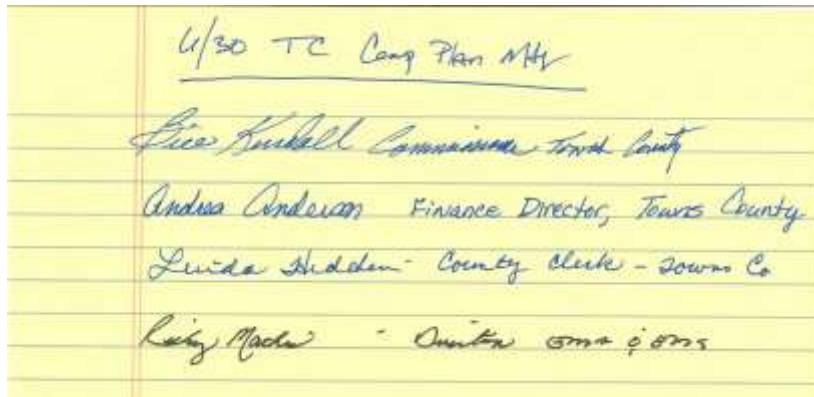 6/30 TC Comp Plan Mtg
Bill Kendall Commissioner Towns County
Andrea Anderson Finance Director, Towns County
Linda Hedden - County Clerk - Towns Co
Ricky - Director EMA & EMS